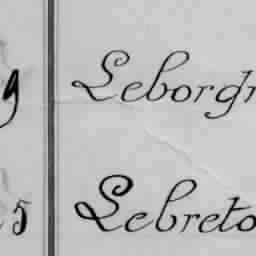 9 Leborgn
5 Lebreto